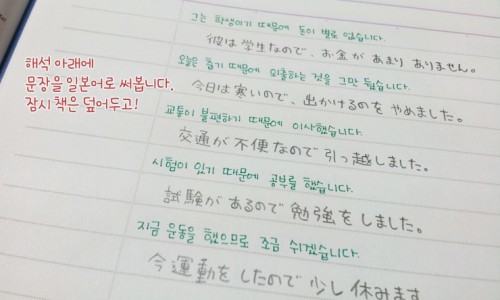 그는 학생이기 때문에 돈이 별로 없습니다.
彼は学生なので、お金が あまり ありません。
해석 아래에
문장을 일본어로 써봅니다.
잠시 책은 덮어두고!
오늘은 춥기 때문에 외출하는 것을 그만 뒀습니다.
今日は寒いので、出かけるのを やめました。
교통이 불편하기 때문에 이사했습니다.
交通が 不便なので 引っ越しました。
시험이 있기 때문에 공부를 했습니다.
試験が あるので 勉強を しました。
지금 운동을 했으므로 조금 쉬겠습니다.
今 運動を したので 少し 休みます